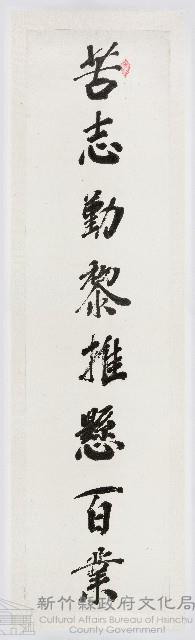 苦志勤黎推懸百業
新竹縣政府文化局
Cultural Affairs Bureau of Hsinchu
County Government